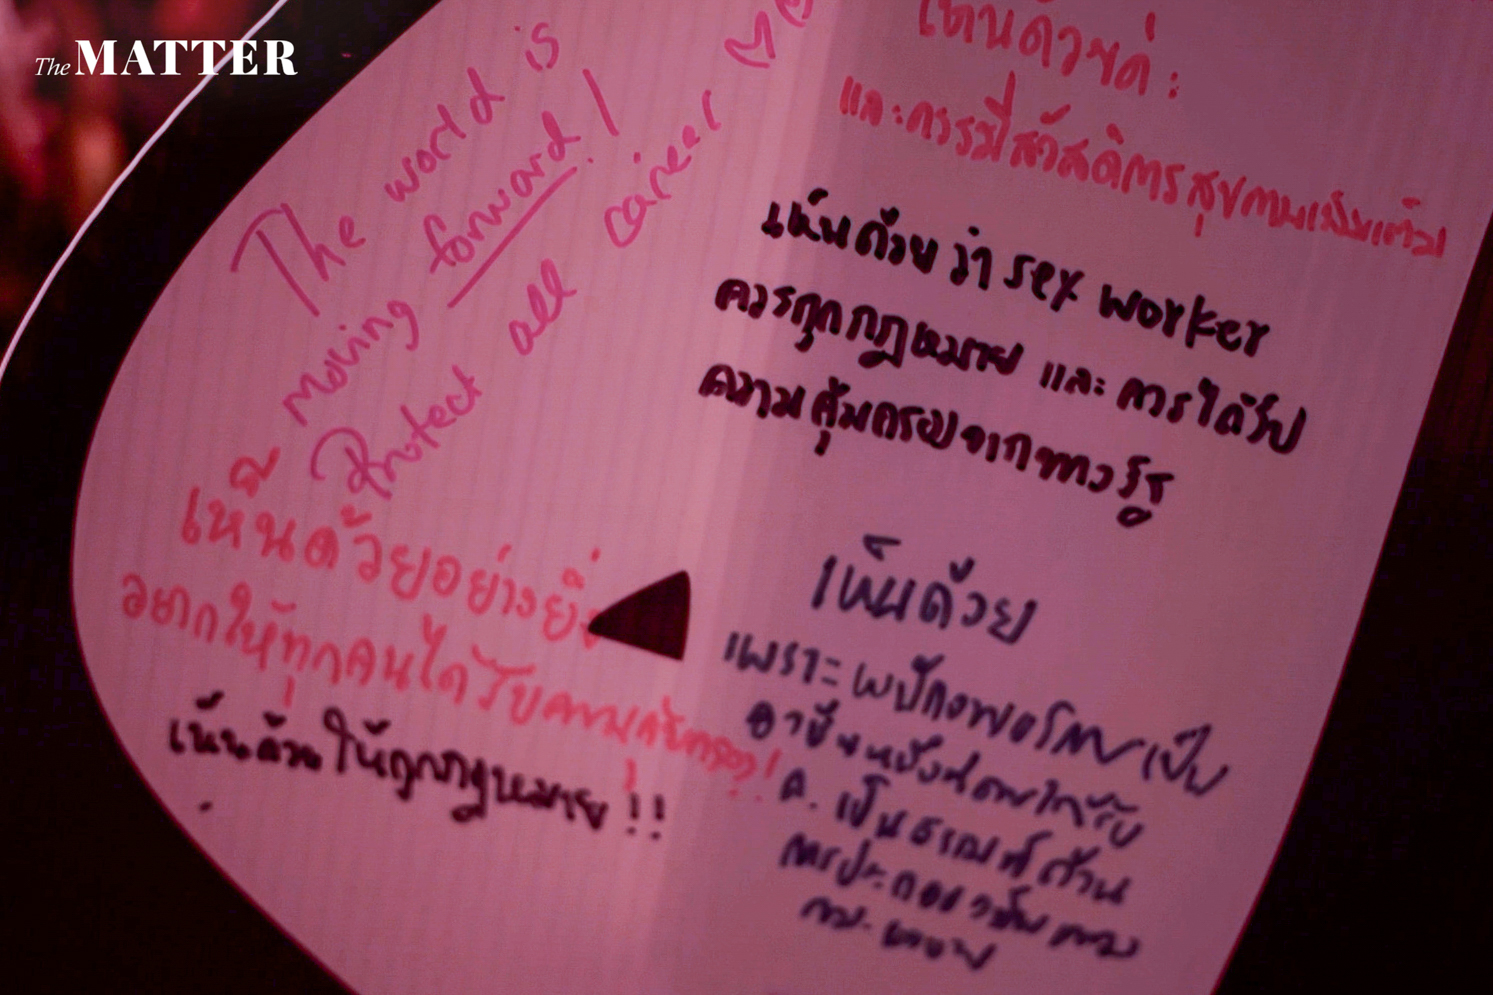 The MATTER
The world is
moving forward!
Protect all career
เห็นด้วยค่ะ
และควรมีสวัสดิการสุขภาพเพิ่มเติม
เห็นด้วย ว่า sex worker
ควรถูกกฎหมาย และ ควรได้รับ
ความคุ้มครองจากทางรัฐ
เห็นด้วยอย่างยิ่ง
อยากให้ทุกคนได้รับความคุ้มครอง!
เห็นด้วย ให้ถูกกฎหมาย !!
เห็นด้วย
เพราะ เป็น
อาชีพหนึ่ง ได้รับ
ค. เป็นธรรม ด้าน
การประกอบ